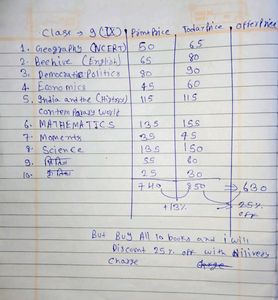 Class → 9 (IX) Print Price Today Price Offer Price
1. Geography (NCERT) 50 65
2. Beehive (English) 65 80
3. Democratic Politics 80 90
4. Economics 45 60
5. India and the (History) 115 115
Contemporary World
6. MATHEMATICS 135 155
7. Moments 35 45
8. Science 135 150
9. क्षितिज 55 60
10. 25 30
740 850 → 630
+13% 25% off
But Buy All 10 books and i will
Discount 25% off with Dilivery
Charge